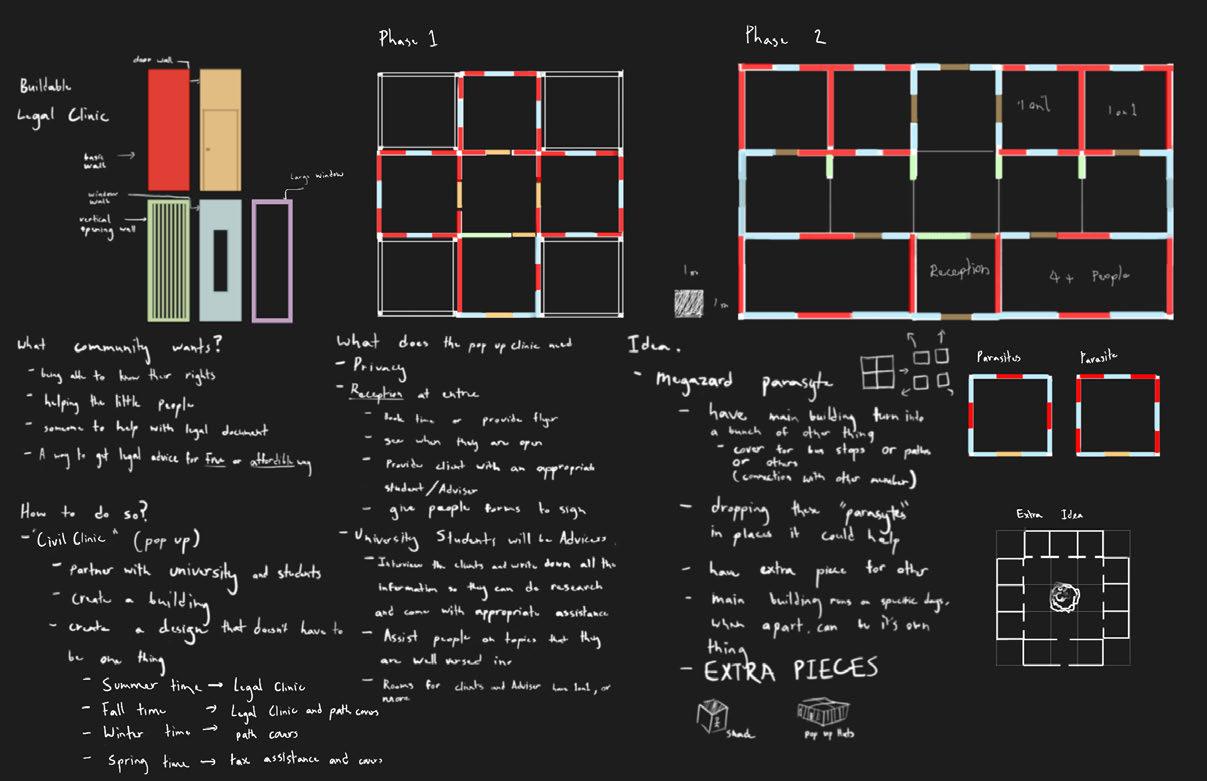 Buildable
Legal Clinic
door wall
basic
wall
window
wall
vertical
opening wall
Large window
Phase 1
Phase 2
1 on 1
1 on 1
Reception
4 + People
1 m
1 m
What community wants?
- being able to know their rights
- helping the little People
- someone to help with legal document
- A way to get legal advice for free or affordible way
How to do so?
- "Civil Clinic" (pop up)
- partner with university and students
- create a building
- create a design that doesn't have to
be one thing
- Summer time → Legal Clinic
- Fall time → Legal Clinic and path covers
- Winter time → path covers
- Spring time → tax assistance and covers
What does the pop up clinic need
- Privacy
- Reception at entrie
- Book time or provide flyer
- see when they are open
- Provide client with an appropriate
student/Adviser
- give people forms to sign
- University Students will be Advisers.
- Interview the clients and write down all the
information so they can do research
and come with appropriate assistance
- Assist people on topics that they
are well versed in
- Rooms for clients and Adviser have 1on1, or
more
Idea.
- Megazard parasyte
- have main building turn into
a bunch of other thing
- cover for bus stops or paths
or others
(connection with other member)
- dropping these "parasytes"
in places it could help
- have extra piece for other
- main building runs on specific days,
when apart, can be it's own
thing
- EXTRA PIECES
Shack
Pop up Huts
Parasites
Parasite
Extra Idea